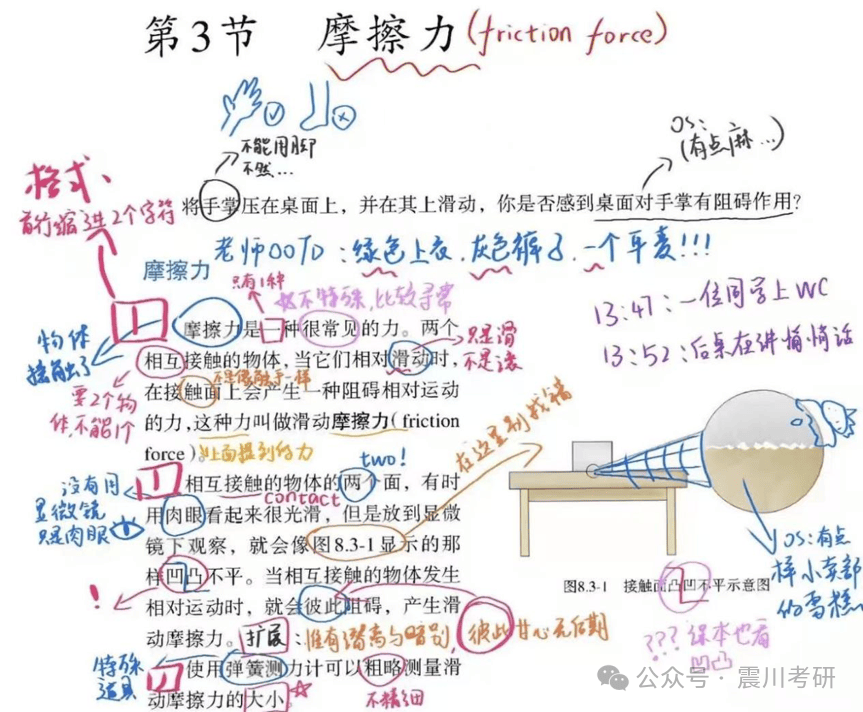 第3节 摩擦力(friction force)
不能用脚
不然...
OS:
(有点麻...)
格式、
首行缩进2个字符
将手掌压在桌面上，并在其上滑动，你是否感到桌面对手掌有阻碍作用?
老师OOTD:绿色上衣.灰色裤子.一个耳麦!!!
摩擦力
只有1种
不特殊,比较寻常
13:47:一位同学上WC
13:52:后桌在讲悄悄话
物体
接触了
摩擦力是一种很常见的力。两个
只是滑
不是滚
相互接触的物体，当它们相对滑动时，
要2个物
体,不能1个
在接触面上会产生一种阻碍相对运动
的力，这种力叫做滑动摩擦力(friction
force)。
上面提到的力
在这里别找错
two!
没有用
显微镜
只是肉眼
相互接触的物体的两个面，有时
contact
用肉眼看起来很光滑，但是放到显微
镜下观察，就会像图8.3-1显示的那
样凹凸不平。当相互接触的物体发生
!
相对运动时，就会彼此阻碍，产生滑
动摩擦力。
扩展:唯有潜离与暗别,彼此甘心无后期
图8.3-1 接触面凸凹不平示意图
OS:有点
像小卖部
的雪糕
???课本也看
凹凸
特殊
道具
使用弹簧测力计可以粗略测量滑
动摩擦力的大小。
不精细
公众号·震川考研